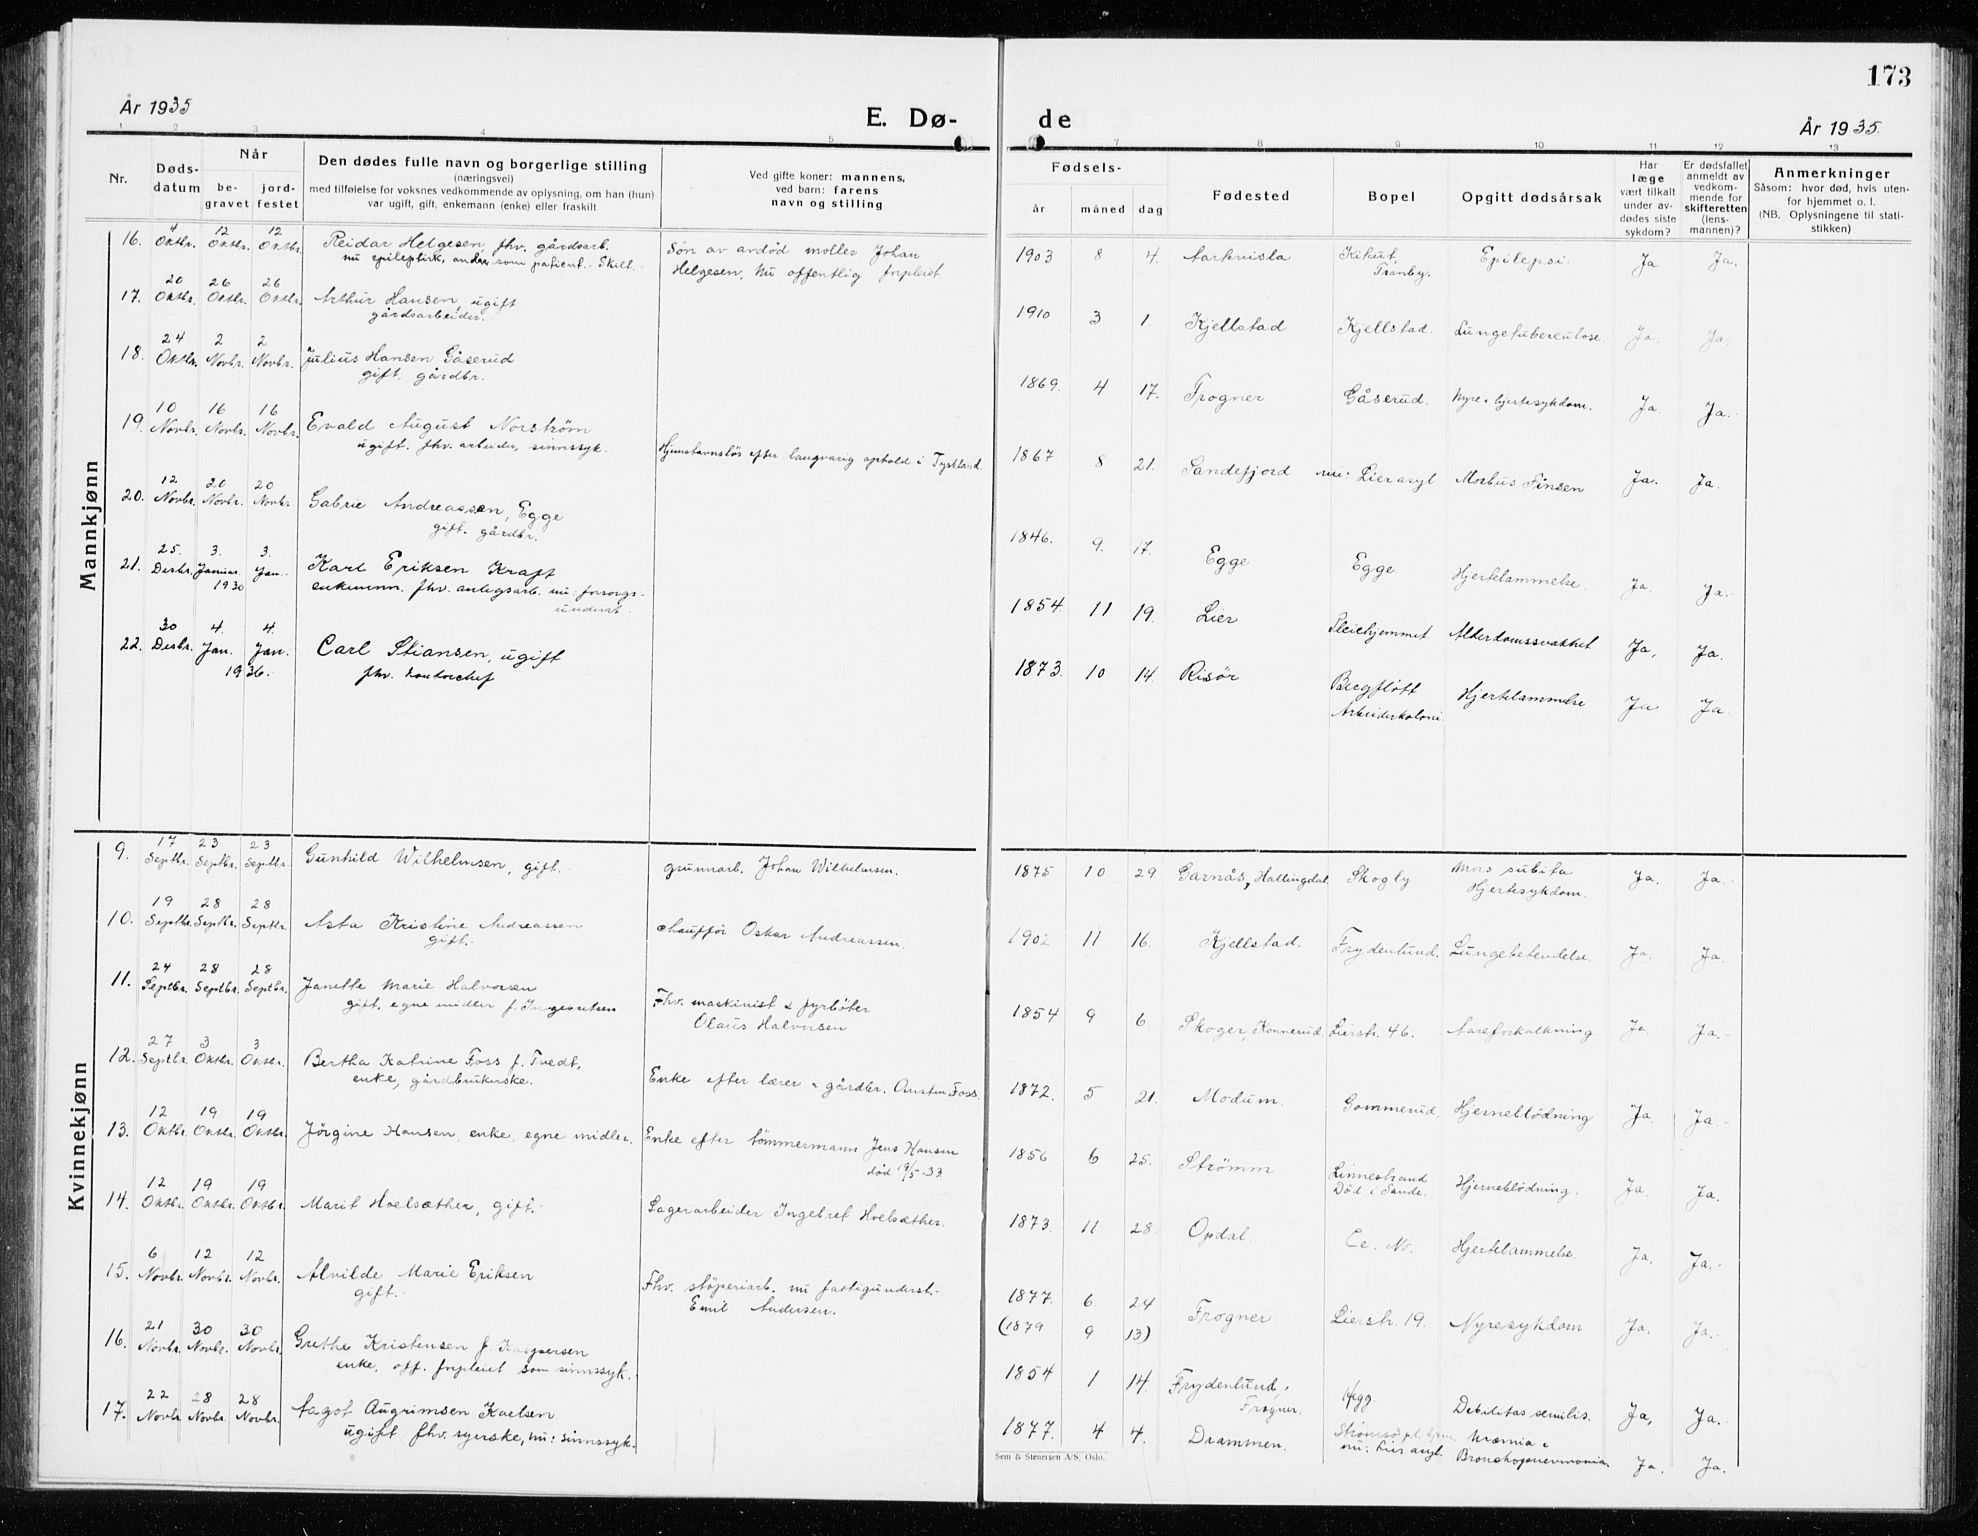 173
År 1935
E. Dø-
de
År 1935.
1 2 3 4 5 7 8 9 10 11 12 13
Nr.
Døds-
datum
Når
be-
gravet
jord-
festet
Den dødes fulle navn og borgerlige stilling
(næringsvei)
med tilføielse for voksnes vedkommende av oplysning, om han (hun)
var ugift, gift, enkemann (enke) eller fraskilt
Ved gifte koner: mannens,
ved barn: farens
navn og stilling
Fødsels-
år måned dag
Fødested
Bopel
Opgitt dødsårsak
Har
læge
vært tilkalt
under av-
dødes siste
sykdom?
Er dødsfallet
anmeldt av
vedkom-
mende for
skifteretten
(lens-
mannen)?
Anmerkninger
Såsom: hvor død, hvis uten-
for hjemmet o. l.
(NB. Oplysningene til stati-
stikken)
Mannkjønn
16. 4 Oktbr. 12 Oktbr. 12 Oktbr. Reidar Helgesen, fhv. gårdsarb.
nu epileptisk, som patient. Skilt.
Søn av avdød møller Johan
Helgesen. Nu offentlig forpleiet
1903 8 4. Kihut, Tranby. Epilepsi. Ja Ja.
17. 20 Oktbr. 26 Oktbr. 26 Oktbr. Arthur Hansen, ugift
gårdsarbeider.
1910 3 1. Kjellstad Kjellstad. Lungetuberculose. Ja. Ja.
18. 24 Oktbr. 2 Novbr. 2 Novbr. Julius Hansen Gåserud
gift, gårdbr.
1869. 4 17. Frogner Gåserud. Nyre & hjertesykdom. Ja Ja.
19. 10 Novbr. 16 Novbr. 16 Novbr. Evald August Norström
ugift. fhv. arbeider, sinnssyk.
Hjemstavnsløs efter langvarig ophold i Tyskland.
1867 8 21. Sandefjord nu: Lier asyl Morbus Ja. Ja.
20. 12 Novbr. 20 Novbr. 20 Novbr. Gabrie Andreassen, Egge
gift. gårdbr.
1846. 9. 17. Egge Egge. Hjertelammelse. Ja. Ja.
21. 25. Desbr. 3. Januar 1930 3. Jan. Karl Eriksen Kraft
enkemann. fhv. anlegsarb. nu: forsorgs-
underst.
1854. 11 19. Lier Pleiehjemmet Alderdomssvakhet Ja, Ja.
22. 30 Desbr. 4. Jan. 4. Jan. 1936. Carl Stiansen, ugift
fhv. kontorchef
1873. 10 14. Risör Bergfløtt Arbeiderkoloni. Hjertelammelse Ja Ja
Kvinnekjønn
9. 17 Septbr. 23 Septbr. 23 Septbr. Gunhild Wilhelmsen, gift.
grunnarb. Johan Wilhelmsen.
1875 10 29. Garnås, Hallingdal. Skogly Mors subita
Hjertesykdom. Ja. Ja.
10. 19 Septbr. 28 Septbr. 28 Septbr. Asta Kristine Andreassen
gift.
chaufför Oskar Andreassen.
1902 11 16. Kjellstad. Frydenlund. Lungebetendelse. Ja. Ja.
11. 24 Septbr. 28 Septbr. 28 Septbr. Janette Marie Halvorsen
gift. egne midler f. Ingevretsen
Fhv. maskinist & fyrböter
Olaus Halvorsen
1854 9 6. Skoger, Konnerud. Lierstr. 46. Aareforkalkning Ja. Ja.
12. 27 Septbr. 3 Oktbr. 3 Oktbr. Bertha Katrine Foss f. Tvedt,
enke, gårdbrukerske.
Enke efter lærer & gårdbr. Foss.
1872. 5 21. Modum. Gommerud. Hjerneblödning Ja. Ja.
13. 12 Oktbr. 19 Oktbr. 19 Oktbr. Jörgine Hansen, enke, egne midler.
Enke efter tömmermann Jens Hansen
død 19/5-33.
1856 6 25. Strömm Linnestrand
Död i Sande. Hjerneblödning. Ja Ja.
14. 12 Oktbr. 19 Oktbr. 19 Oktbr. Marit Hoelsæther, gift.
Lagerarbeider Ingebret Hoelsæther.
1873. 11 28. Opdal. Hjertelammelse. Ja, Ja.
15. 6 Novbr. 12 Novbr. 12 Novbr. Alvilde Marie Eriksen
gift.
Fhv. stöperiarb. nu fattigunderst.
Emil Andersen.
1877. 6. 24
(1879 9 13)
Frogner Lierstr. 19. Nyresykdom Ja. Ja.
16. 21 Novbr. 30 Novbr. 30 Novbr. Grethe Kristensen f. Kaspersen
enke, off. forpleiet som sinnssyk.
1854 1 14. Frydenlund,
Frogner. Debilitas senilis. Ja, Ja.
17. 22 Novbr. 28 Novbr. 28 Novbr. Aagot Augrimsen Kaelsen
ugift fhv. syerske, nu: sinnssyk.
1877. 4 4. Drammen. nu: Lier asyl. Uræmia &
Bronchopneumonia. Ja. Ja.
Sem & Stenersen A/S, Oslo.